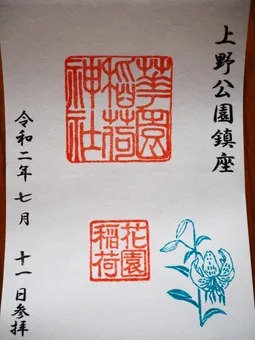 上野公園鎮座
華園稲荷神社
花園稲荷
令和二年七月 十一日参拝